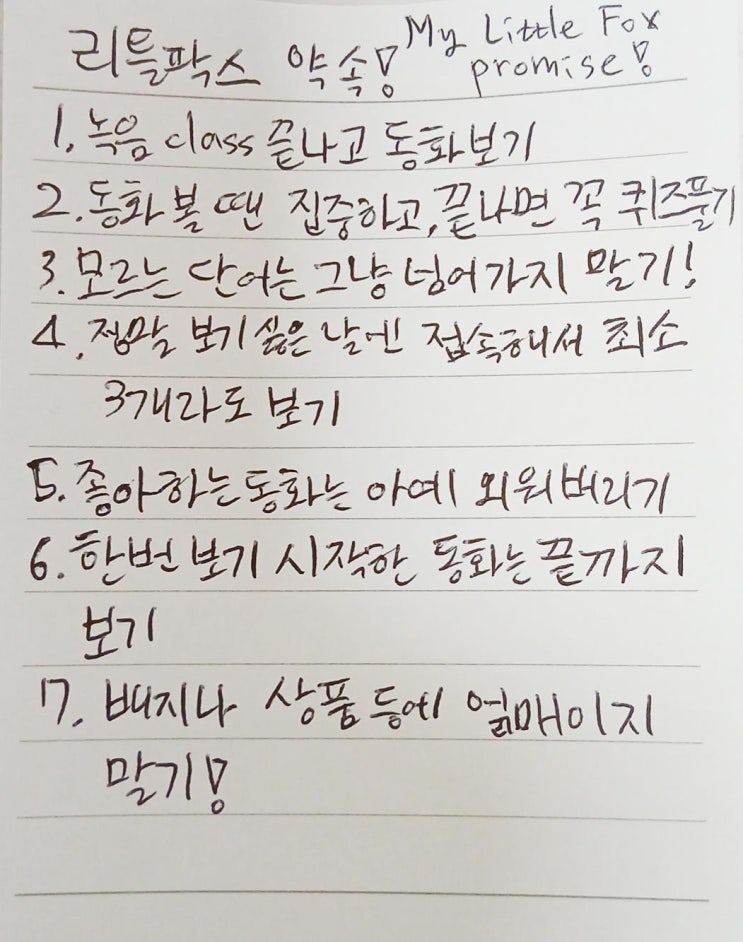 리틀팍스 약속! My Little Fox
promise!
1. 녹음 class 끝나고 동화보기
2. 동화 볼 땐 집중하고, 끝나면 꼭 퀴즈풀기
3. 모르는 단어는 그냥 넘어가지 말기!
4. 정말 보기 싫은 날엔 접속해서 최소
3개라도 보기
5. 좋아하는 동화는 아예 외워버리기
6. 한번 보기 시작한 동화는 끝까지
보기
7. 배지나 상품 등에 얽매이지
말기!